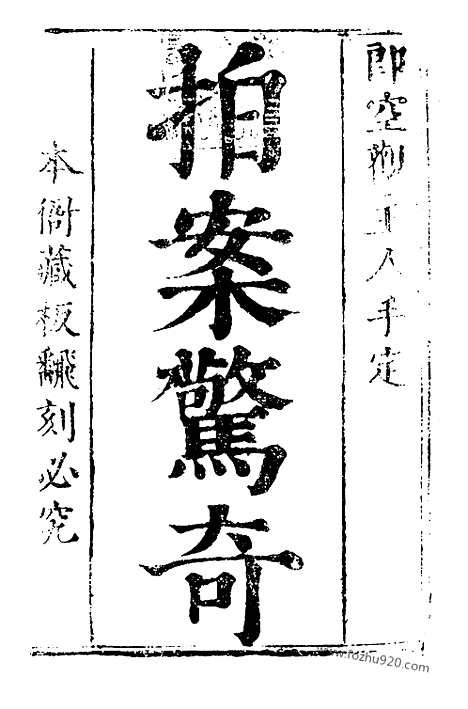 即空觀主人手定
拍案驚奇
本衙藏板翻刻必究
www.fozhu920.com